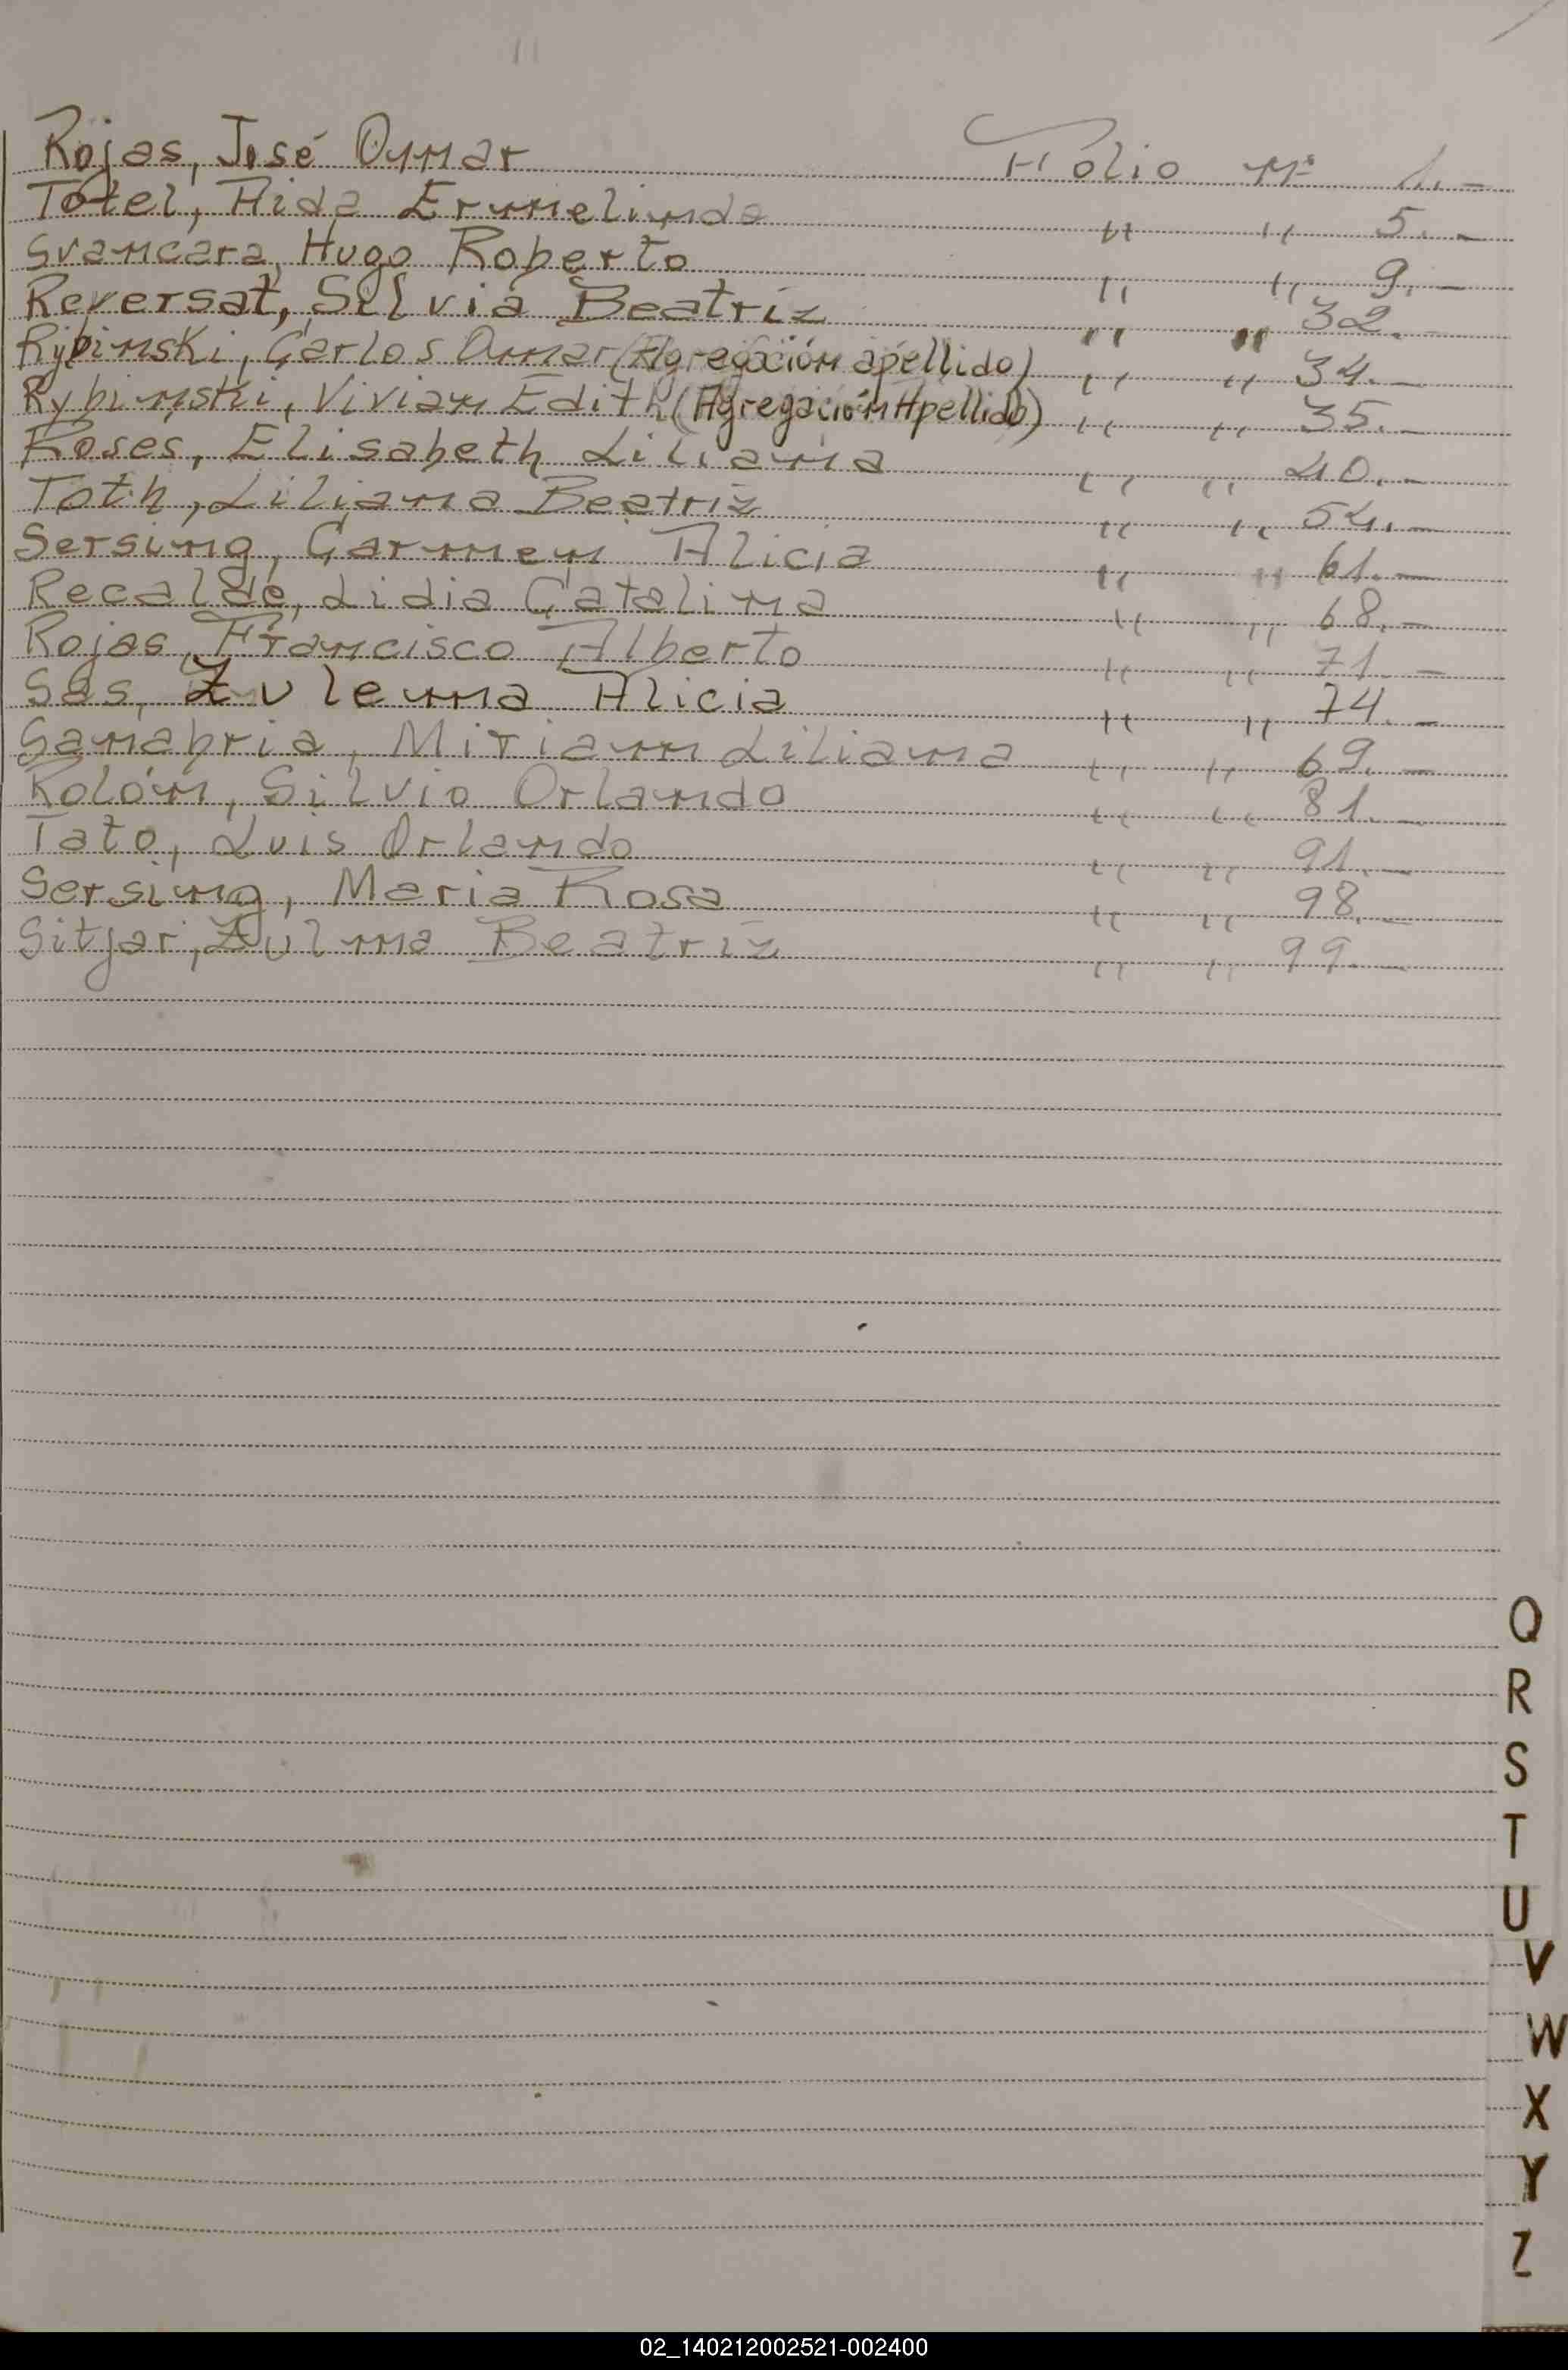 Rojas, José Omar Folio Nº 1.-
Totel, Aida Ermelinda " " 5.-
Svancara, Hugo Roberto " " 9.-
Reversat, Silvia Beatriz " " 32.-
Rybinski, Carlos Omar (Agregación apellido) " " 34.-
Rybinski, Vivian Edith (Agregación Apellido) " " 35.-
Roses, Elisabeth Liliana " " 40.-
Toth, Liliana Beatriz " " 54.-
Sersing, Carmen Alicia " " 61.-
Recalde, Lidia Catalina " " 68.-
Rojas, Francisco Alberto " " 71.-
Sas, Zulema Alicia " " 74.-
Sanabria, Miriam Liliana " " 69.-
Rolón, Silvio Orlando " " 81.-
Tato, Luis Orlando " " 91.-
Sersing, Maria Rosa " " 98.-
Sitjar, Zulma Beatriz " " 99.-
Q
R
S
T
U
V
W
X
Y
Z
02_140212002521-002400